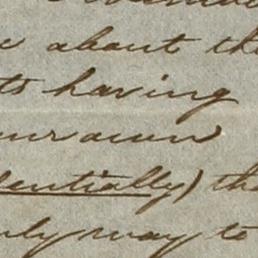 about the
having
our own
dentially) the
only way to